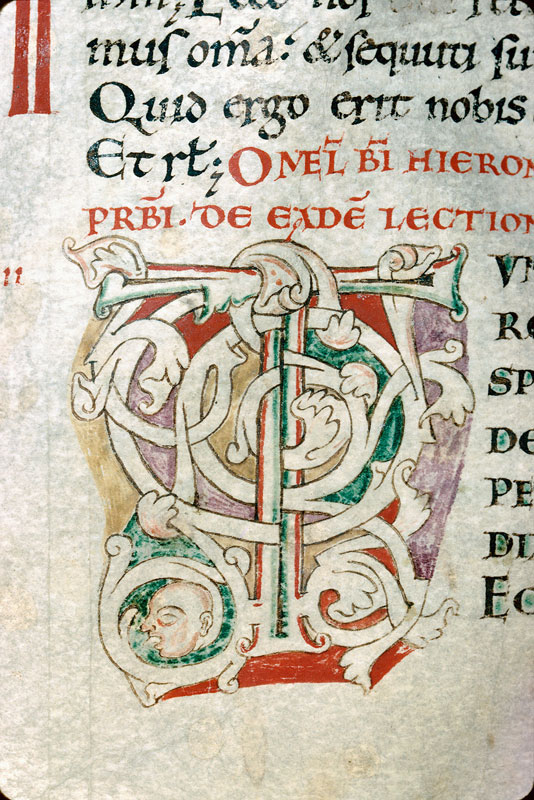 mus om̅a: & sequuti su
Quid ergo erit nobis
Et rł;
OMEL̅ B̅I HIERON
PRB̅I. DE EADE̅ LECTION
II
T
VN
RO
SP
DE
PE
DI
EC